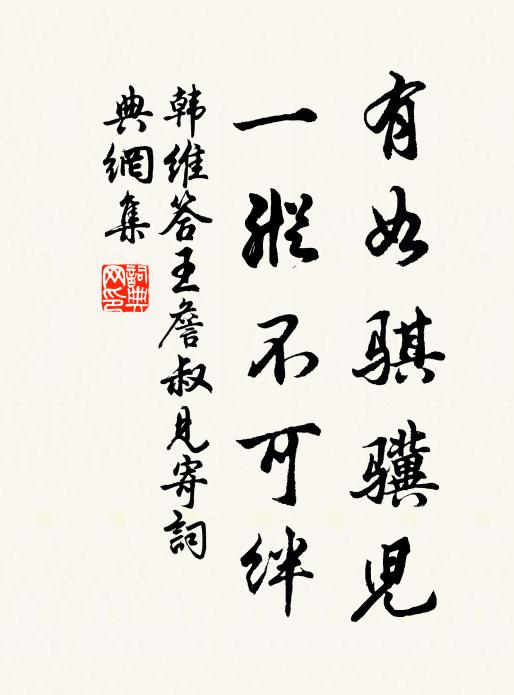 有如骐骥児
一縱不可绊
韩维答王詹叔见寄詞
典網集
詞典
网印